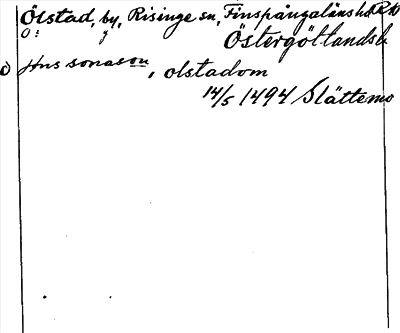 Ölstad, by, Risinge sn, Finspångaläns hd
Östergötlands
Jhus sonason, olstadom
14/5 1494 Slättemo